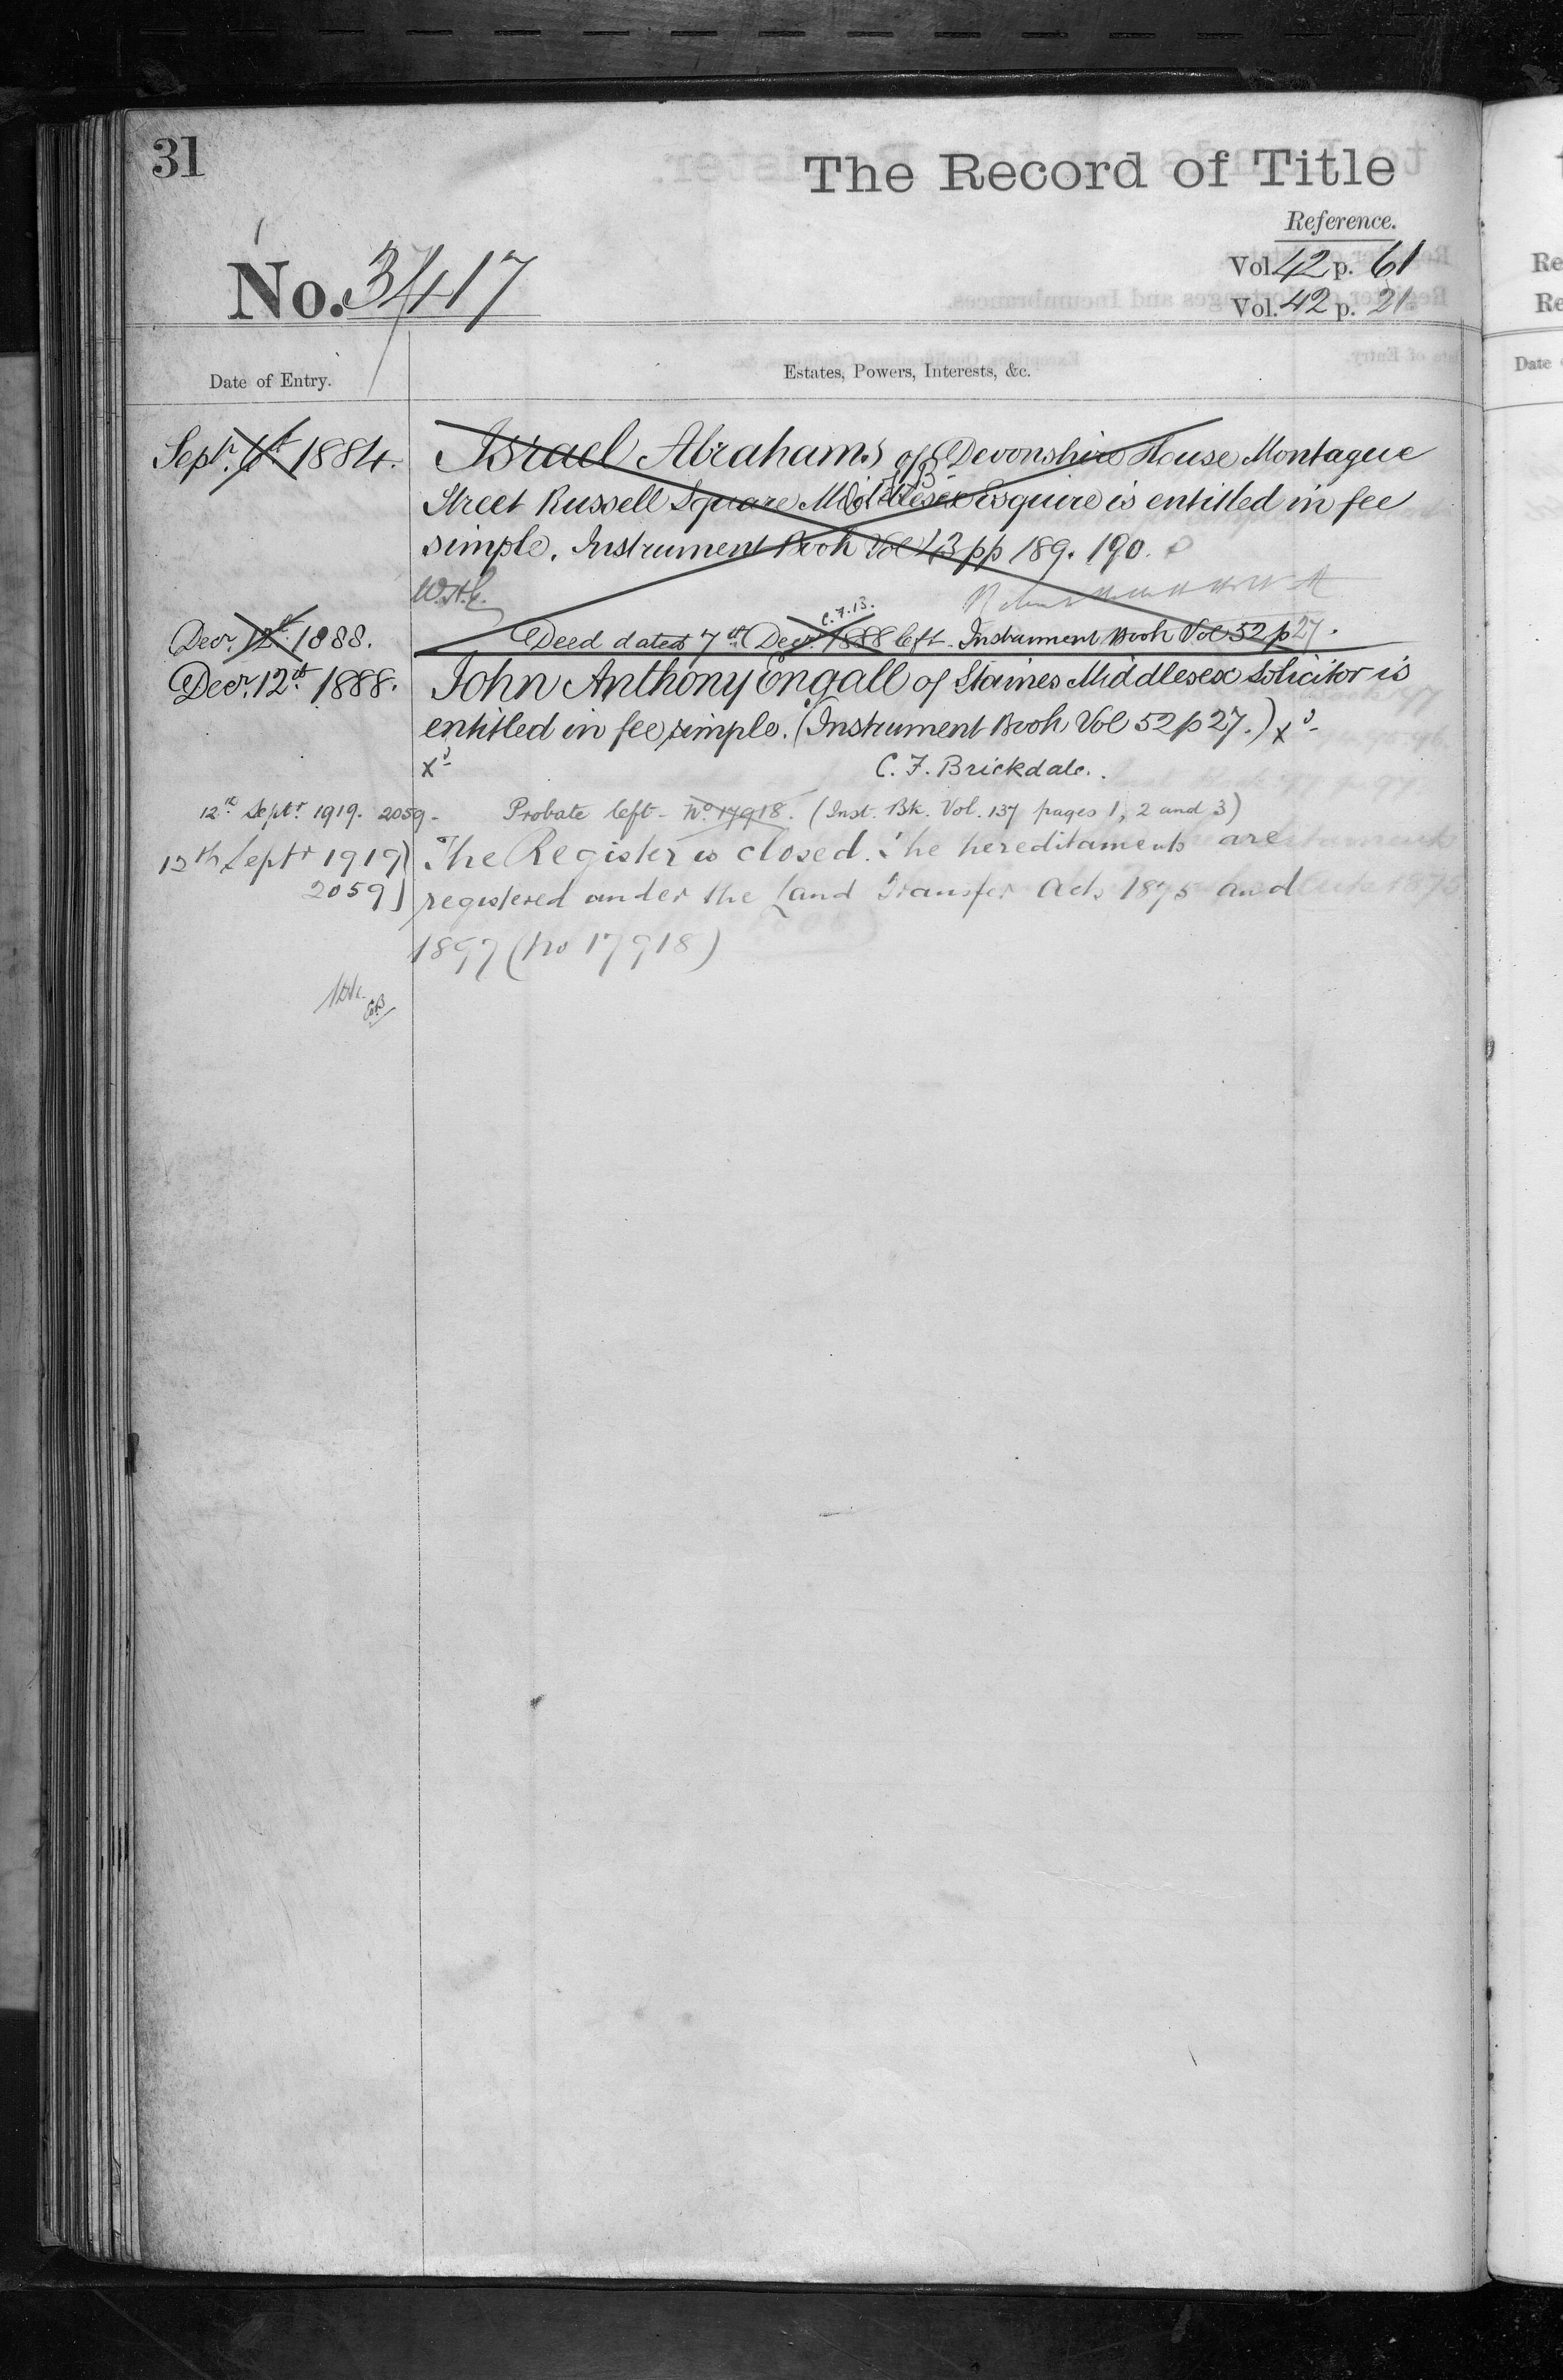 31
The Record of Title
Reference.
No. 3417
Vol. 42 p. 61
Vol. 42 p. 21
Date of Entry.
Estates, Powers, Interests, &c.
Septr. 6th 1884. Israel Abrahams of Devonshire House Montague
Street Russell Square Middlesex Esquire is entitled in fee
simple. Instrument Book Vol 43 pp 189. 190.
W.H.G.
C.F.B.
Decr. 12th 1888. Deed dated 7th Decr. 1888 left. Instrument Book Vol 52 p 27.
Decr. 12th 1888. John Anthony Engall of Staines Middlesex Solicitor is
entitled in fee simple. (Instrument Book Vol 52 p 27.) xd
xd C. F. Brickdale.
12th Septr 1919. 2059 - Probate left - No 17918. (Inst. Bk. Vol. 137 pages 1, 2 and 3)
12th Septr 1919 The Register is closed. The hereditaments are
2059 registered under the Land Transfer Acts 1875 and
1897 (No 17918)